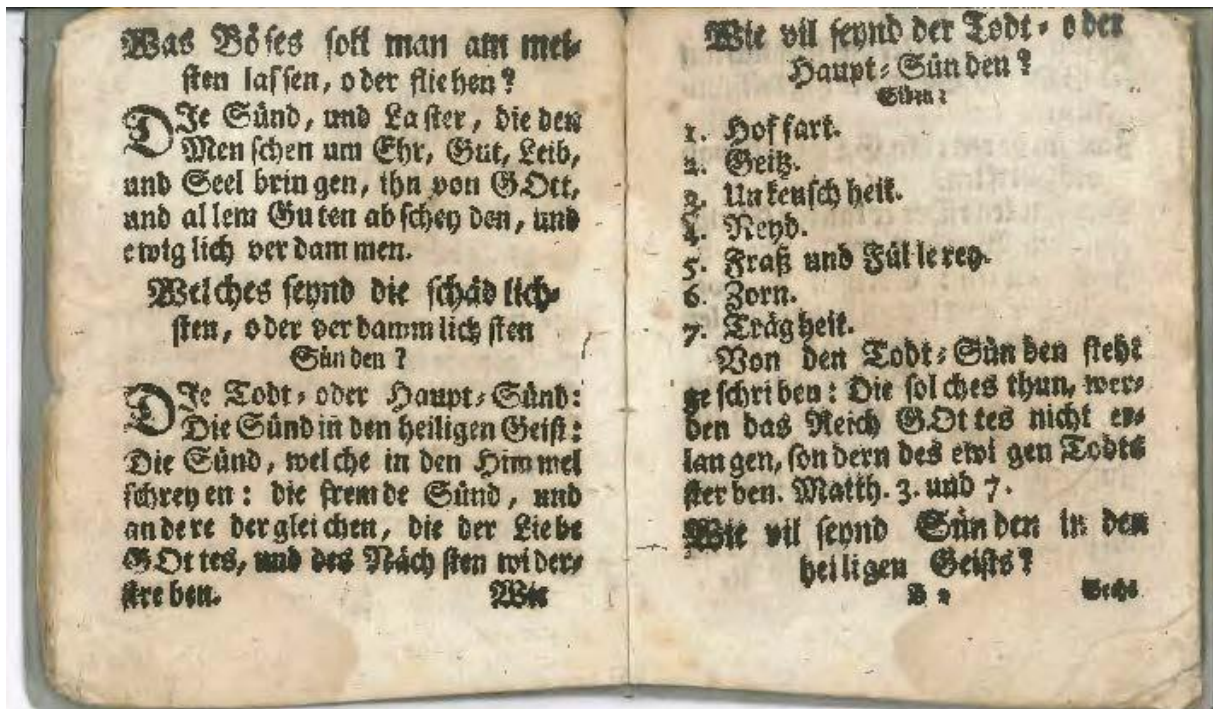 Was Böses soll man am mei-
sten lassen, o der flie hen?
DJe Sünd, und La ster, die den
Men schen um Ehr, Gut, Leib,
und Seel brin gen, ihn von GOtt,
und al lem Gu ten ab schey den, und
e wig lich ver dam men.
Wel ches seynd die schäd lich-
sten, o der ver damm lich sten
Sün den?
DJe Todt- oder Haupt-Sünd:
Die Sünd in den heiligen Geist:
Die Sünd, welche in den Him mel
schrey en: die frem de Sünd, und
an de re der glei chen, die der Liebe
GOt tes, und des Näch sten wi der-
stre ben.
Wie
Wie vil seynd der Todt- o der
Haupt-Sün den?
Siben:
1. Hof fart.
2. Geitz.
3. Un keusch heit.
4. Neyd.
5. Fraß und Fül le rey.
6. Zorn.
7. Träg heit.
Von den Todt-Sün den steht
ge schri ben: Die sol ches thun, wer-
den das Reich GOt tes nicht er-
lan gen, son dern des ewi gen Todts
ster ben. Matth. 3. und 7.
Wie vil seynd Sün den in den
hei ligen Geists?
Sechs